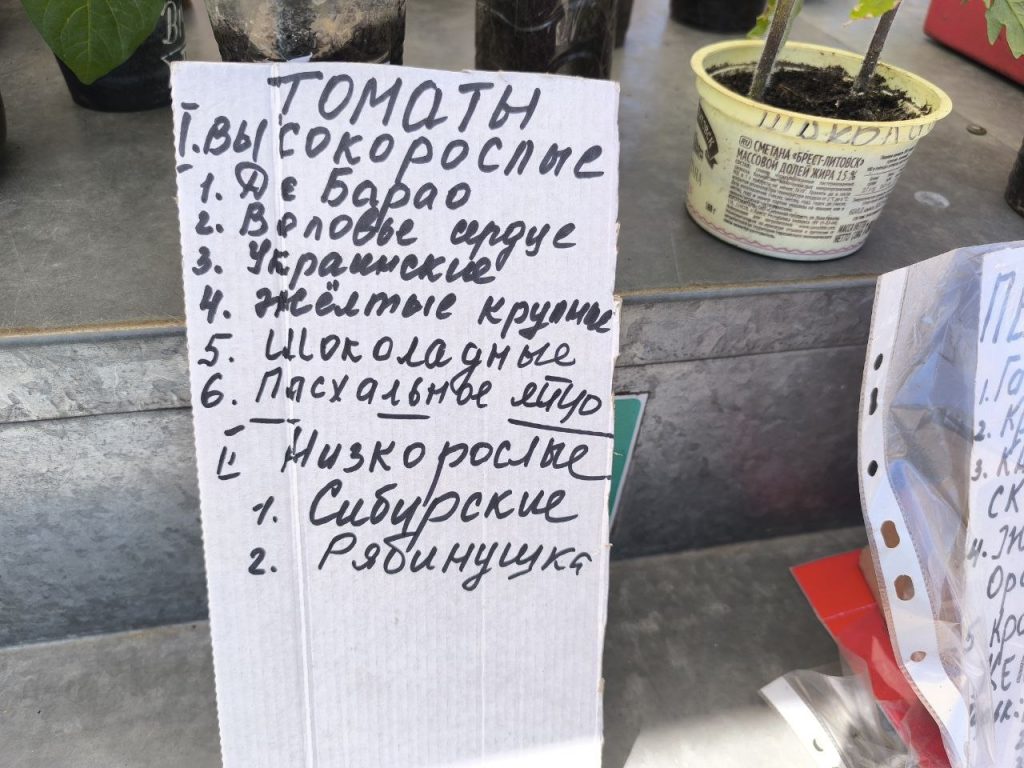 ТОМАТЫ
I. ВЫСОКОРОСЛЫЕ
1. Де Барао
2. Воловье сердце
3. Украинские
4. Жёлтые крупные
5. Шоколадные
6. Пасхальное яйцо
II Низкорослые
1. Сибирские
2. Рябинушка
СМЕТАНА «БРЕСТ-ЛИТОВСК»
МАССОВОЙ ДОЛЕЙ ЖИРА 15 %
1. Го
2. Кр
3.
СК
4. Ж
Ор
5 Кра